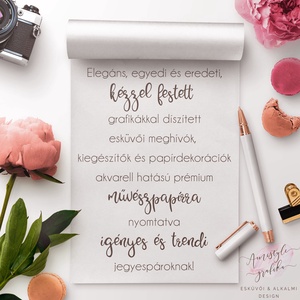 Elegáns, egyedi és eredeti,
kézzel festett
grafikákkal díszített
esküvői meghívók,
kiegészítők és papírdekorációk
akvarell hatású prémium
művészpapírra
nyomtatva
igényes és trendi
jegyespároknak!
Amistyle
grafika
ESKÜVŐI & ALKALMI
DESIGN